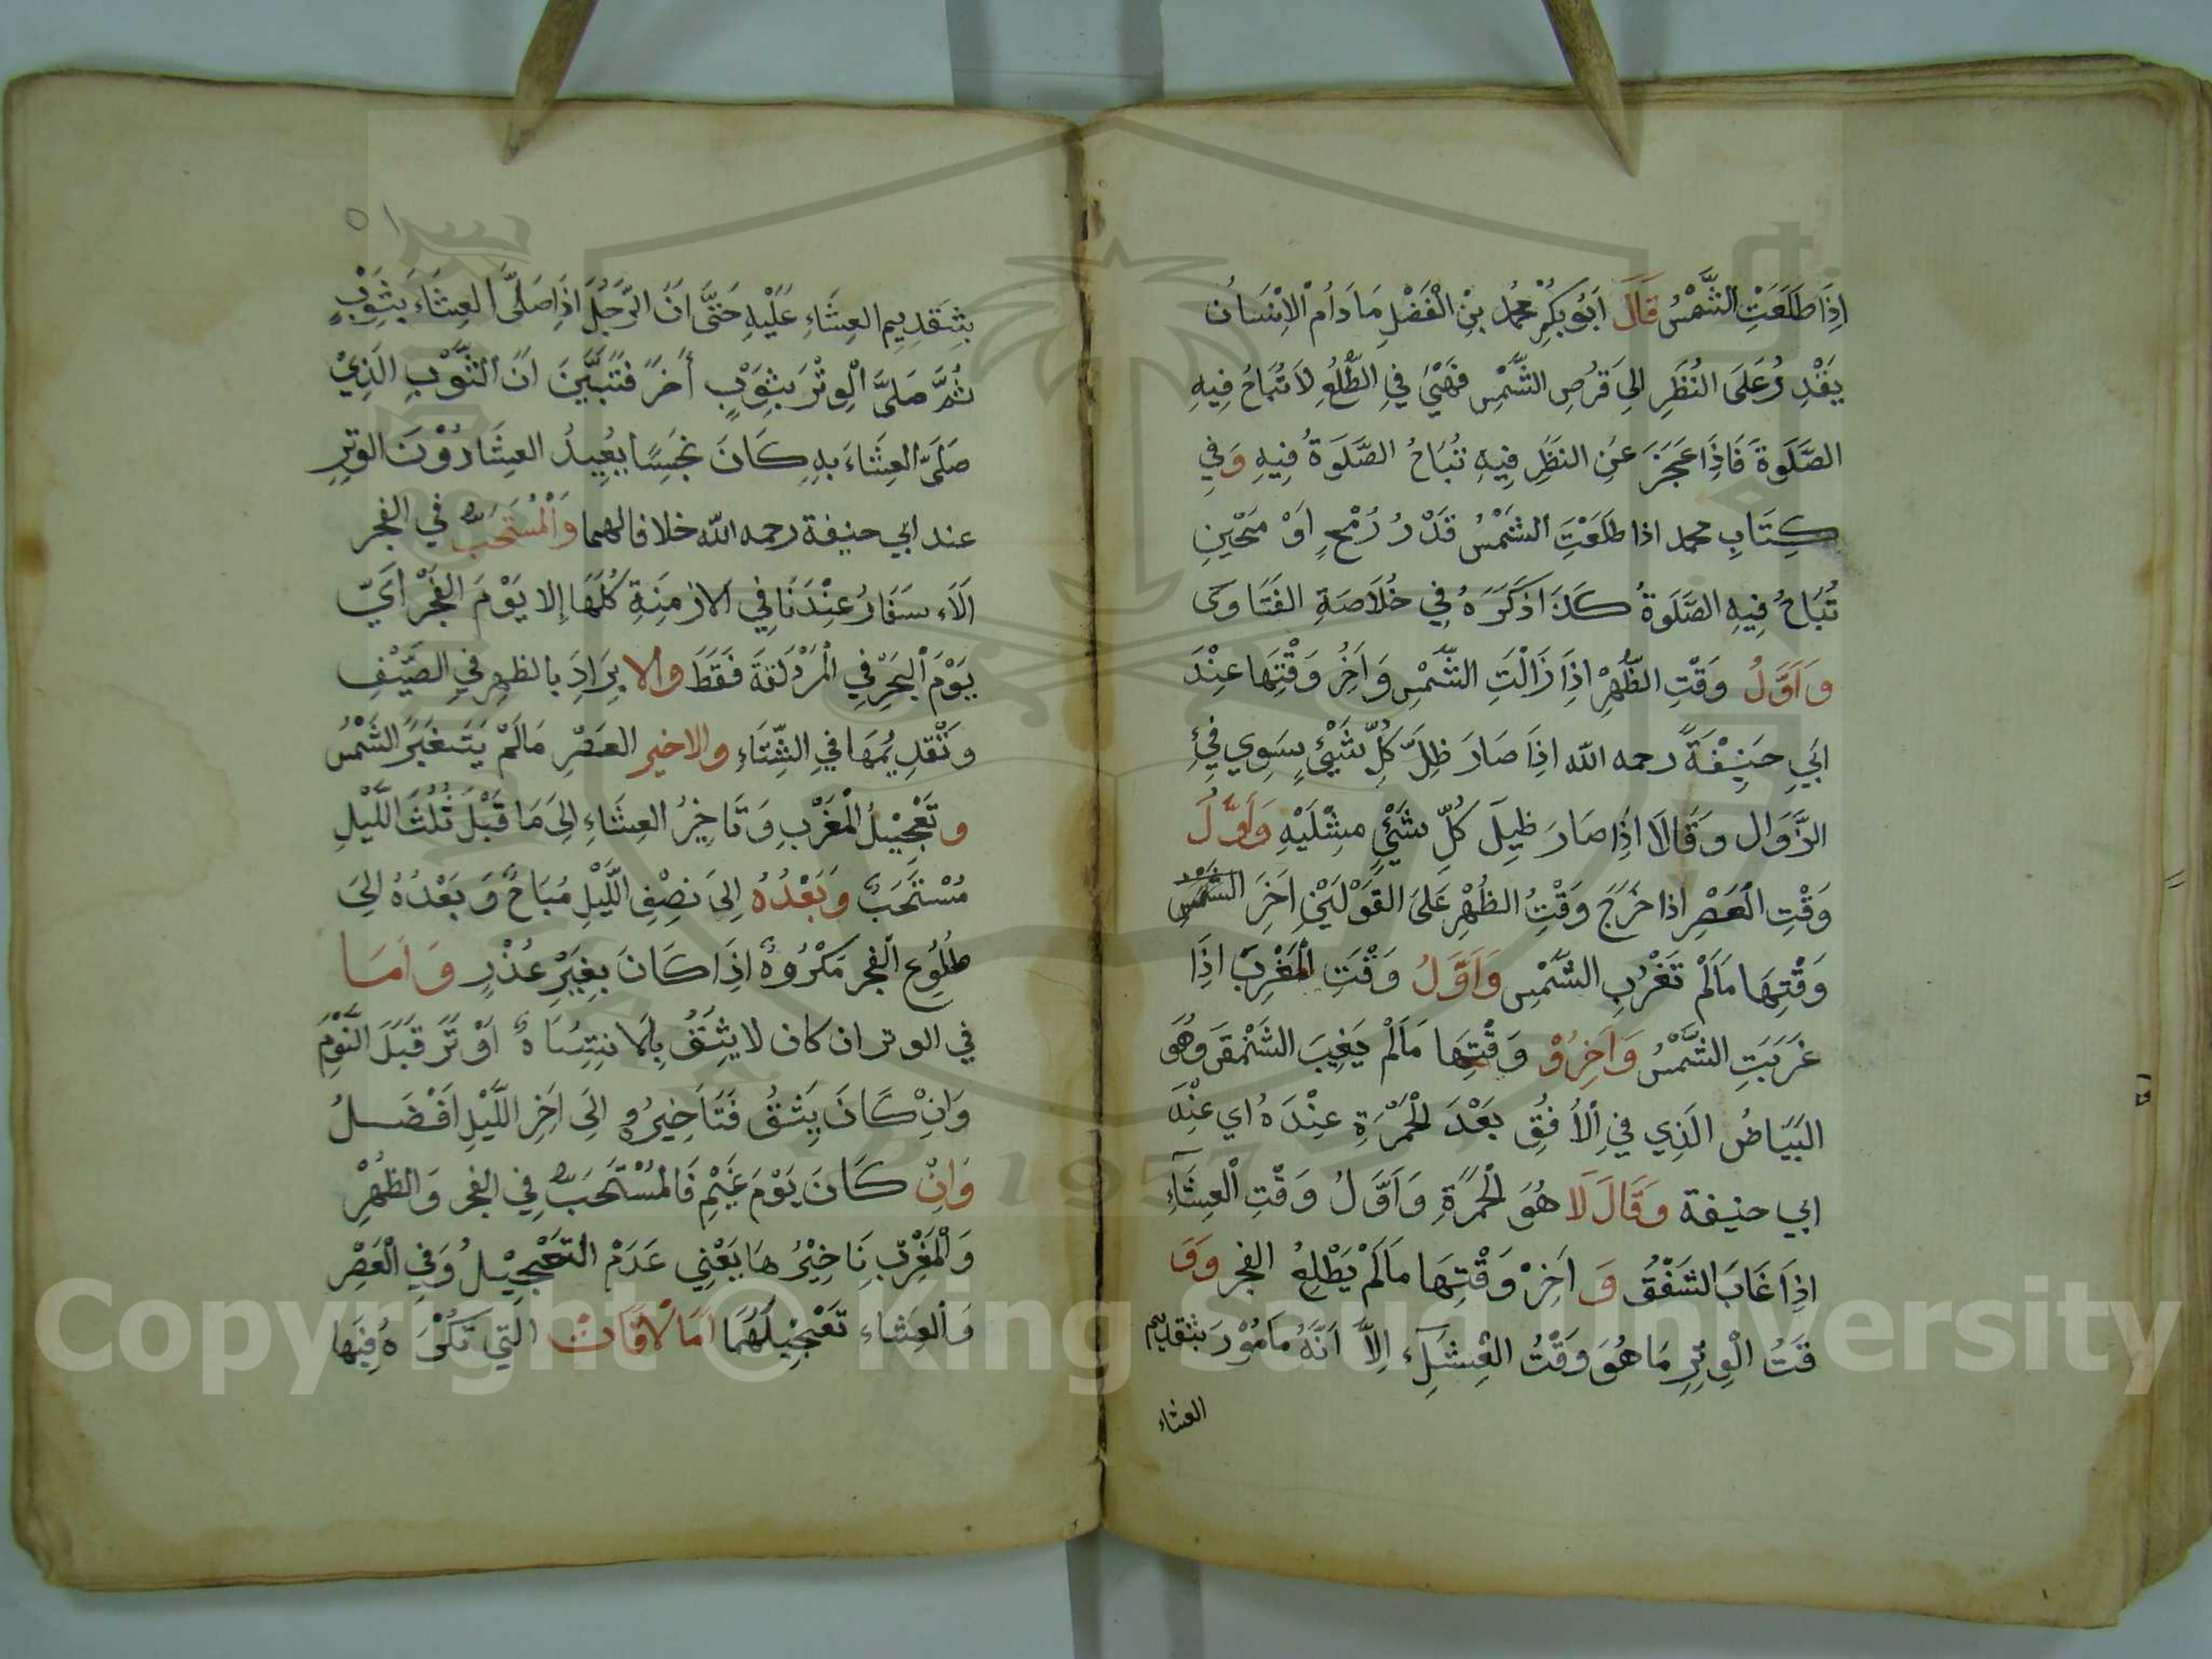 اِذَا طَلَعَتِ الشَّمْسُ قَالَ اَبُو بَكْرٍ مُحَمَّد بِنْ الْفَضْلِ مَا دَامْ الْاِنْسَانُ
يَقْدِرُ عَلَى النَّظَرِ اِلىَ قُرْصِ الشَّمْسِ فَهِيَ فِي الطُّلُعِ لَا تُبَاحُ فِيهِ
الصَّلَوة فَاِذَا عَجَزَ عَنِ النَّظَرِ فِيهِ تُبَاحُ الصَّلَوةُ فِيهِ وَفِي
كِتَابِ محمد اذا طَلَعَتِ الشَّمْسُ قَدْرُ رُمْحٍ اَوْ مَحْيِنِ
تُبَاحُ فِيهِ الصَّلَوةُ كَذَا ذَكَرَهُ فِي خُلَاصَةِ الفَتَاوى
وَاَوَّلُ وَقْتِ الظُّهْرْ اِذَا زَالَتِ الشَّمْسِ وَاَخِرُ وَقْتِهَا عِنْدَ
ابَي حَنِيْفَةَ رحمه الله اِذَا صَارَ ظِلَّ كُلِّ شَيْئٍ سِوِي فِئِ
الزَّوَالِ وَقَالَا اِذَا صَارَ ظِلَ كُلِّ شَيْئٍ مِثْلَيْهِ وَاَوَّلُ
وَقْتِ الْعَصْرِ اذا خَرَجَ وَقْتُ الظُهْرِ عَلىَ القَوْلَيْنِ اَخَرَ الشَّمْس
وَقْتِهَا مَالَمْ تَغْرُبِ الشَّمْسِ وَاَوَّلُ وَقْتِ الْمَغْرِبْ اِذَا
غَرَبَتِ الشَّمْسُ وَاَخِرُوْ وَقْتِهَا مَالَمْ يَغِيبَ الشَّفَقَ وَهُوَ
البَيَاضُ الَذِي فِي الْاُفُقِ بَعْدَ الْحُمْرَةِ عِنْدَهُ اي عِنْدَ
ابي حنيفة وَقَالَ لَا هُوَ الْحُمْرَةِ وَاَوَّلُ وَقْتِ الْعِشَآءِ
اِذَا غَابَ الشَفَقُ وَ اَخِرْ وَقْتِهَا مَالَمْ يَطْلِعْ الفجر وَوَ
قَتُ الْوِتِرِ مَا هُوَ وَقْتُ الْعِشَآء اِلَّا اَنَّهُ مَامُوْر بتقديم
العشاء
٥١
بِتَقَدِيمِ العِشَاءِ عَلَيْهِ حَتَّى اَنَّ الرَّجُلَ اِذَا صَلَّى العِشَاءَ بِثَوْبٍ
ثُمَّ صَلَّى الْوِتْرَ بِثَوْبٍ أَخرً فَتَبَيَّنَ اَنَّ الثَّوْبَ الَذِيْ
صَلَّى العِشَاءَ بِهِ كَانَ نَجِسًا يُعِيدُ العِشَا دُوْنَ الوِترِ
عند ابي حنيفة رحمه الله خلافا لهما وَالْمُسْتَحَبُّ في الفجر
الَاءسَفَارُ عِنْدَنَا فِي الازْمِنَةِ كُلِّهَا اِلا يَوْمَ الفَجْرْ اَيّ
يَوْمَ الْبَحْرِ فِي الْمُزْدَلفَةَ فَقَطَ والا بِرَادِ بالظهرِ فيِ الصَّيْفِ
وَتَقْدِيُمهَا فيِ الشِّتَاءِ والاخير العَصْرِ مَالَمْ يَتَغَيَّرُ الشَّمْسُ
وتَعْجِيْلُ الْمَغْرَبِ وَتَاخِيرُ العِشَاءِ اِلىَ مَا قَبْلَ ثُلُثَ اللَّيْلِ
مُسْتَحَبٌ وَبَعْدُهُ اِلىَ نَصِفِ اللَّيْلِ مُبَاحٌ وَ بَعْدُهُ اِلىَ
طُلُوعِ الْفجر مَكْرُوهٌ اِذَا كَانَ بِغِيْرِ عُذْرٍ وَ اَمَا
في الوتر ان كان لا يَثِقُ بِالانتِبَاهٌ اَوْتَرَ قَبْلَ النَّوْمَ
وَاِنْ كَانَ يَثِقُ فَتَاخِيرُهِ اِلَى اَخِرِ اللَّيْلِ اَفْضَلُ
وَاِنْ كَانَ يَوْمَ غَيْمِ فَالْمُسْتَحَبُّ فِي الفجر وَالظهْرِ
وَالْمَغْرِبْ تَاخِيْرُهَا يَعْنِي عَدَمْ التَعْجِيْلُ وَفِي الْعَصْرِ
وَالْعِشَاءِ تَعْجِيْلَهُمَا اَمَا الْاَوْقَاتْ الَتِي تَكْرَهُ فِيهَا
Copyright © King Saud University
1957